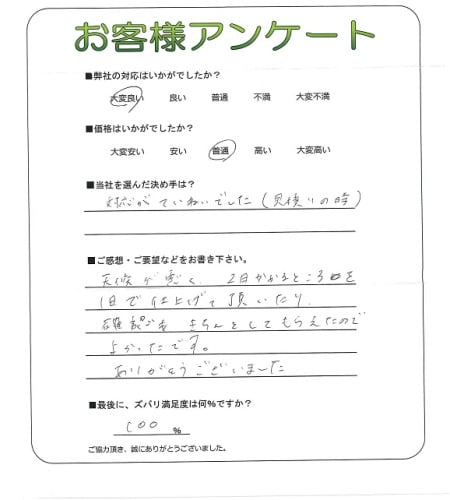 お客様アンケート
■弊社の対応はいかがでしたか?
大変良い 良い 普通 不満 大変不満
■価格はいかがでしたか?
大変安い 安い 普通 高い 大変高い
■当社を選んだ決め手は?
対応がていねいでした(見積りの時)
■ご感想・ご要望などをお書き下さい。
天候が悪く、2日かかるところを
1日で仕上げて頂いたり、
きちんとしてもらえたので
よかったです。
ありがとうございました
■最後に、ズバリ満足度は何%ですか?
100 %
ご協力頂き、誠にありがとうございました。